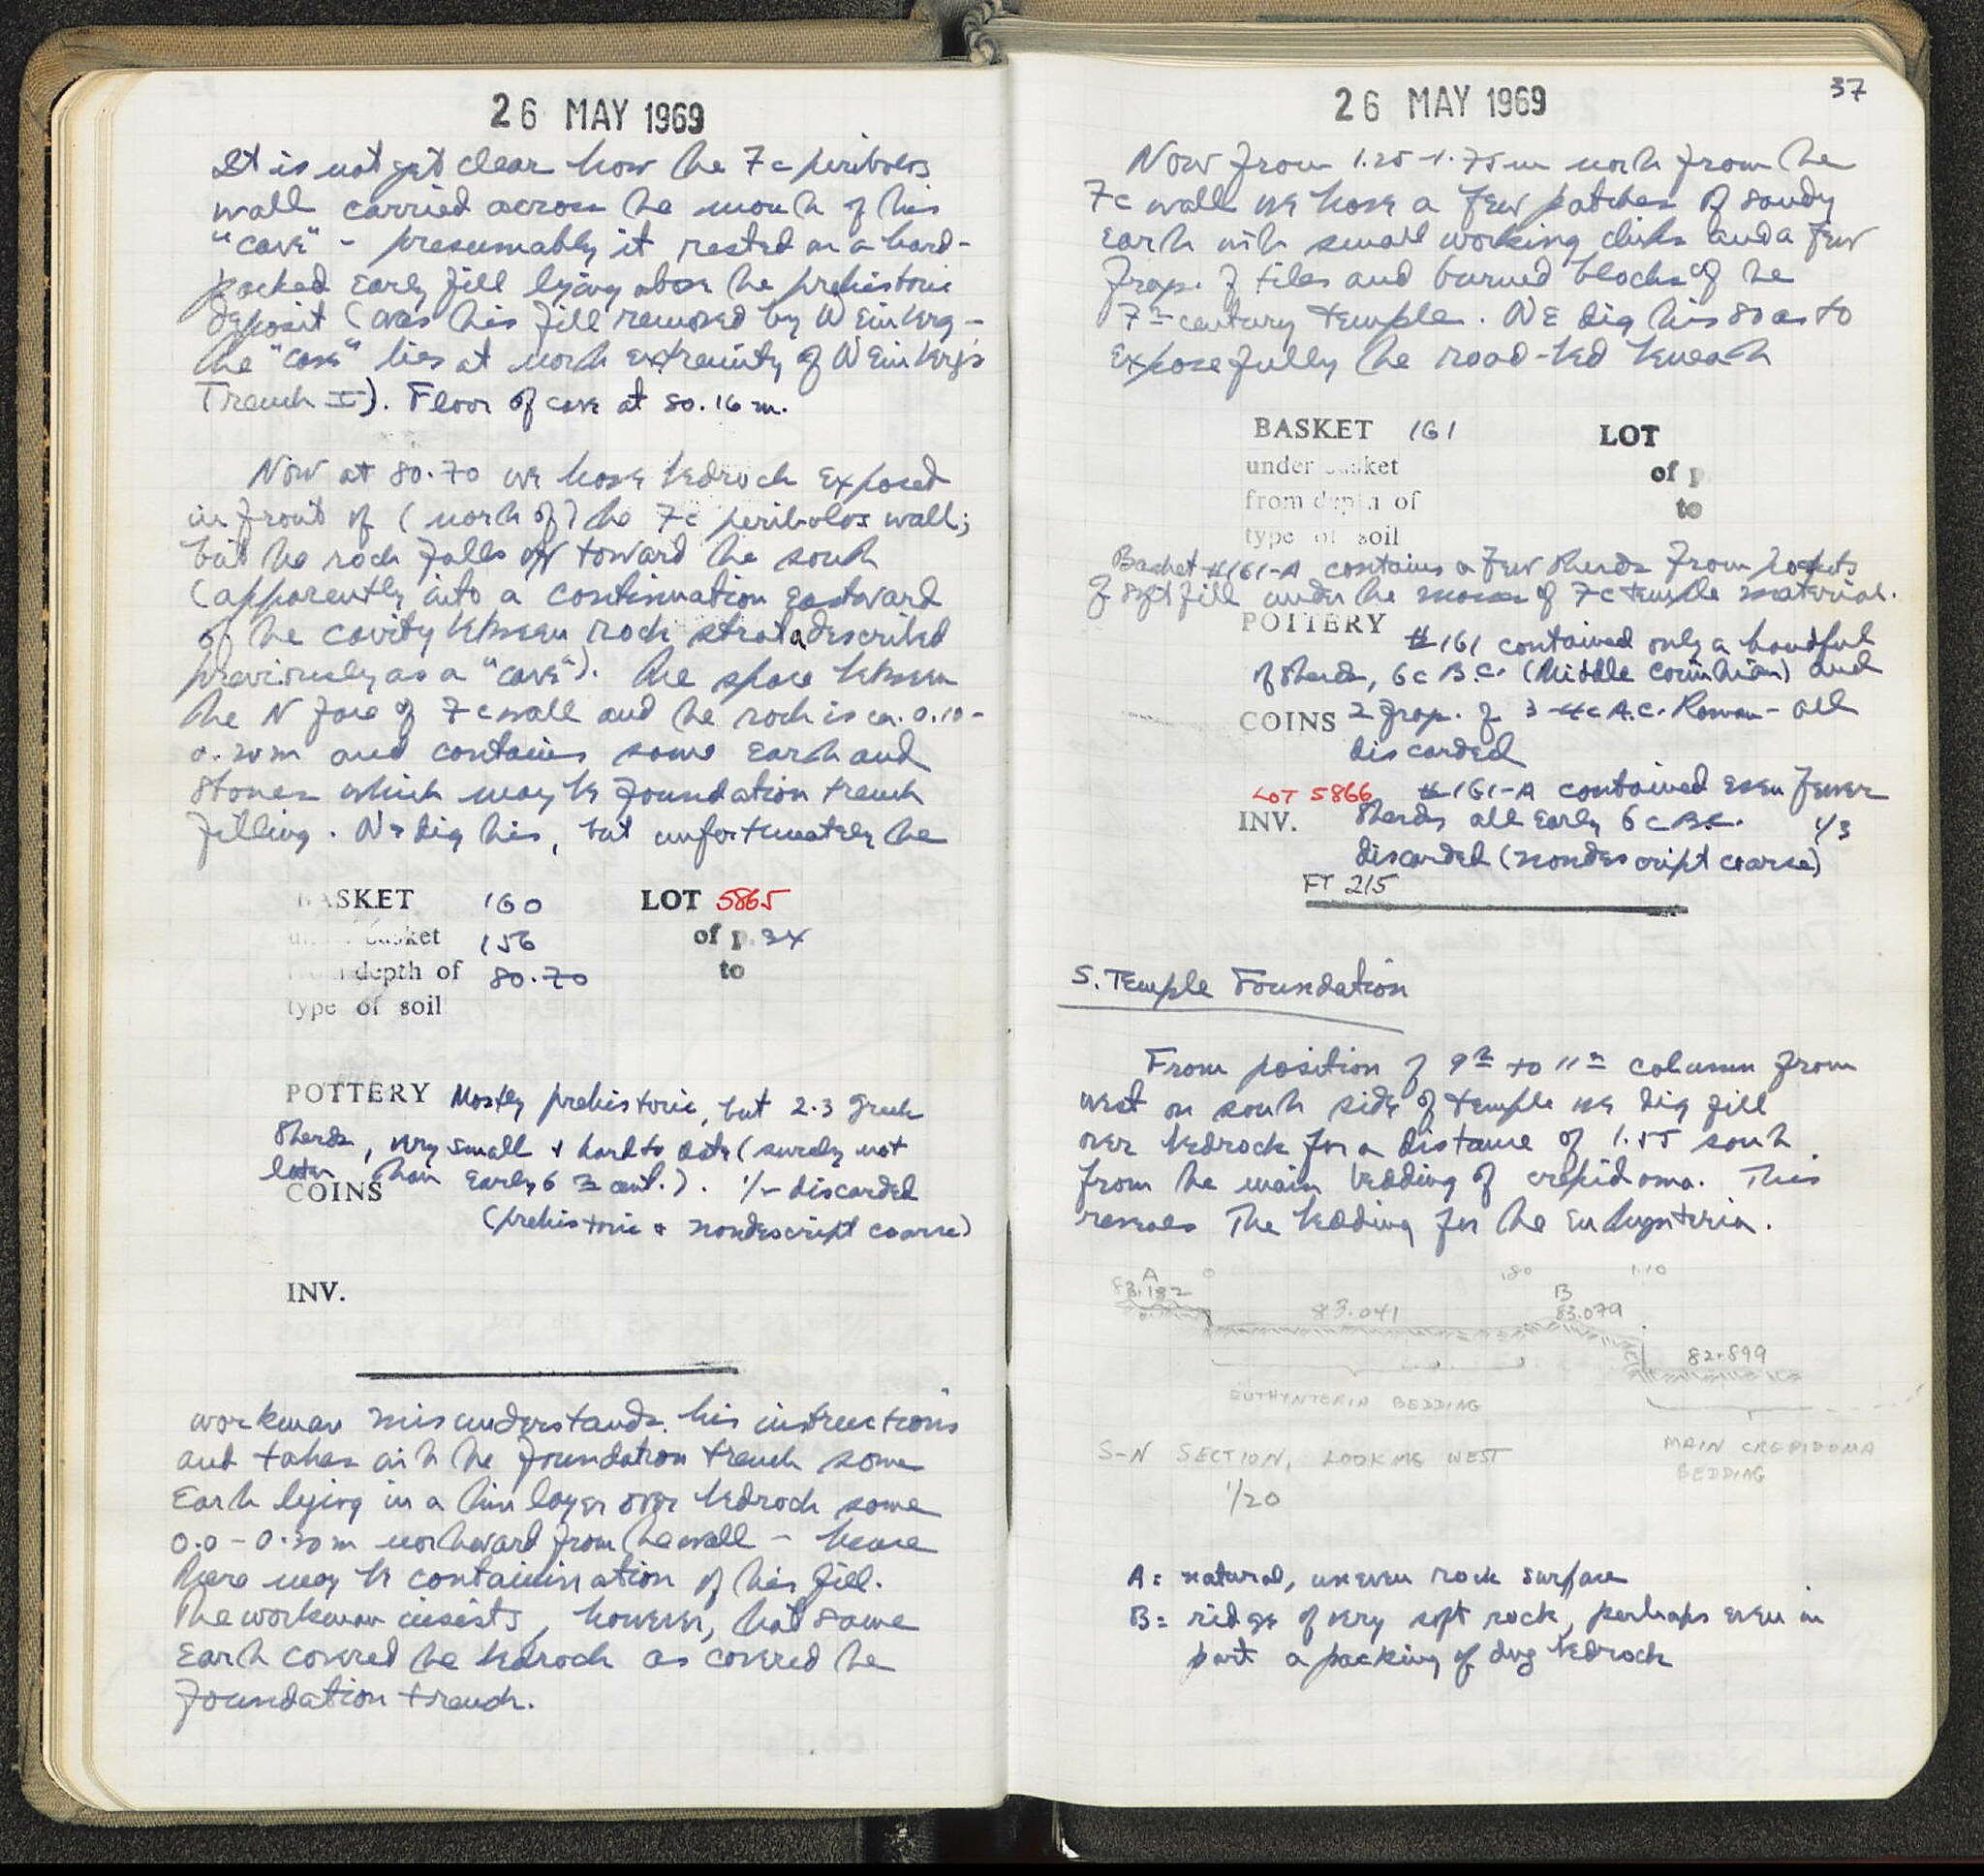 26 MAY 1969
It is not yet clear how the 7c peribolos
wall carried across the mouth of this
"cave" - presumably it rested on a hard-
packed early fill lying above the prehistoric
deposit (was this fill removed by Weinberg -
the "cave" lies at north extremity of Weinberg's
Trench I). Floor of cave at 80.16 m.
Now at 80.70 we have bedrock exposed
in front of (north of) the 7c peribolos wall;
but the rock falls off toward the south
(apparently into a continuation eastward
of the cavity between rock strata described
previously as a "cave"). The space between
the N face of 7c wall and the rock is ca. 0.10-
0.20m and contains some earth and
stones which may be foundation trench
filling. We dig this, but unfortunately the
BASKET 160 LOT 5865
under basket 156 of p. 34
from depth of 80.70 to
type of soil
POTTERY Mostly prehistoric, but 2-3 Greek
sherds, very small & hard to date (surely not
later than early 6th cent.). 1/- discarded
COINS
(prehistoric & nondescript coarse)
INV.
workman misunderstands his instructions
and takes with the foundation trench some
earth lying in a thin layer over bedrock some
0.0 - 0.30m northward from the wall - hence
there may be contamination of this fill.
The workman insists, however, that same
earth covered the bedrock as covered the
foundation trench.
26 MAY 1969
37
Now from 1.25-1.75m north from the
7c wall we have a few patches of sandy
earth with small working chips and a few
frags. of tiles and burned blocks of the
7th century temple. We dig this so as to
expose fully the road-bed beneath
BASKET 161 LOT
under basket of p.
from depth of to
type of soil
Basket #161-A contains a few sherds from pockets
of soft fill under the mass of 7c temple material.
POTTERY #161 contained only a handful
of sherds, 6c B.C. (Middle Corinthian) and
COINS 2 frag. of 3-4c A.C. Roman - all
discarded
LOT 5866 #161-A contained even fewer
INV. sherds all early 6c B.C. 1/3
discarded (nondescript coarse)
FT 215
S. Temple Foundation
From position of 9th to 11th column from
west on south side of temple we dig fill
over bedrock for a distance of 1.55 south
from the main bedding of crepidoma. This
reveals the bedding for the euthynteria.
A 0 .80 1.10
83.182 83.041 B 83.079
82.899
EUTHYNTERIA BEDDING
S-N SECTION, LOOKING WEST
MAIN CREPIDOMA
BEDDING
1/20
A = natural, uneven rock surface
B = ridge of very soft rock, perhaps even in
part a packing of dug bedrock